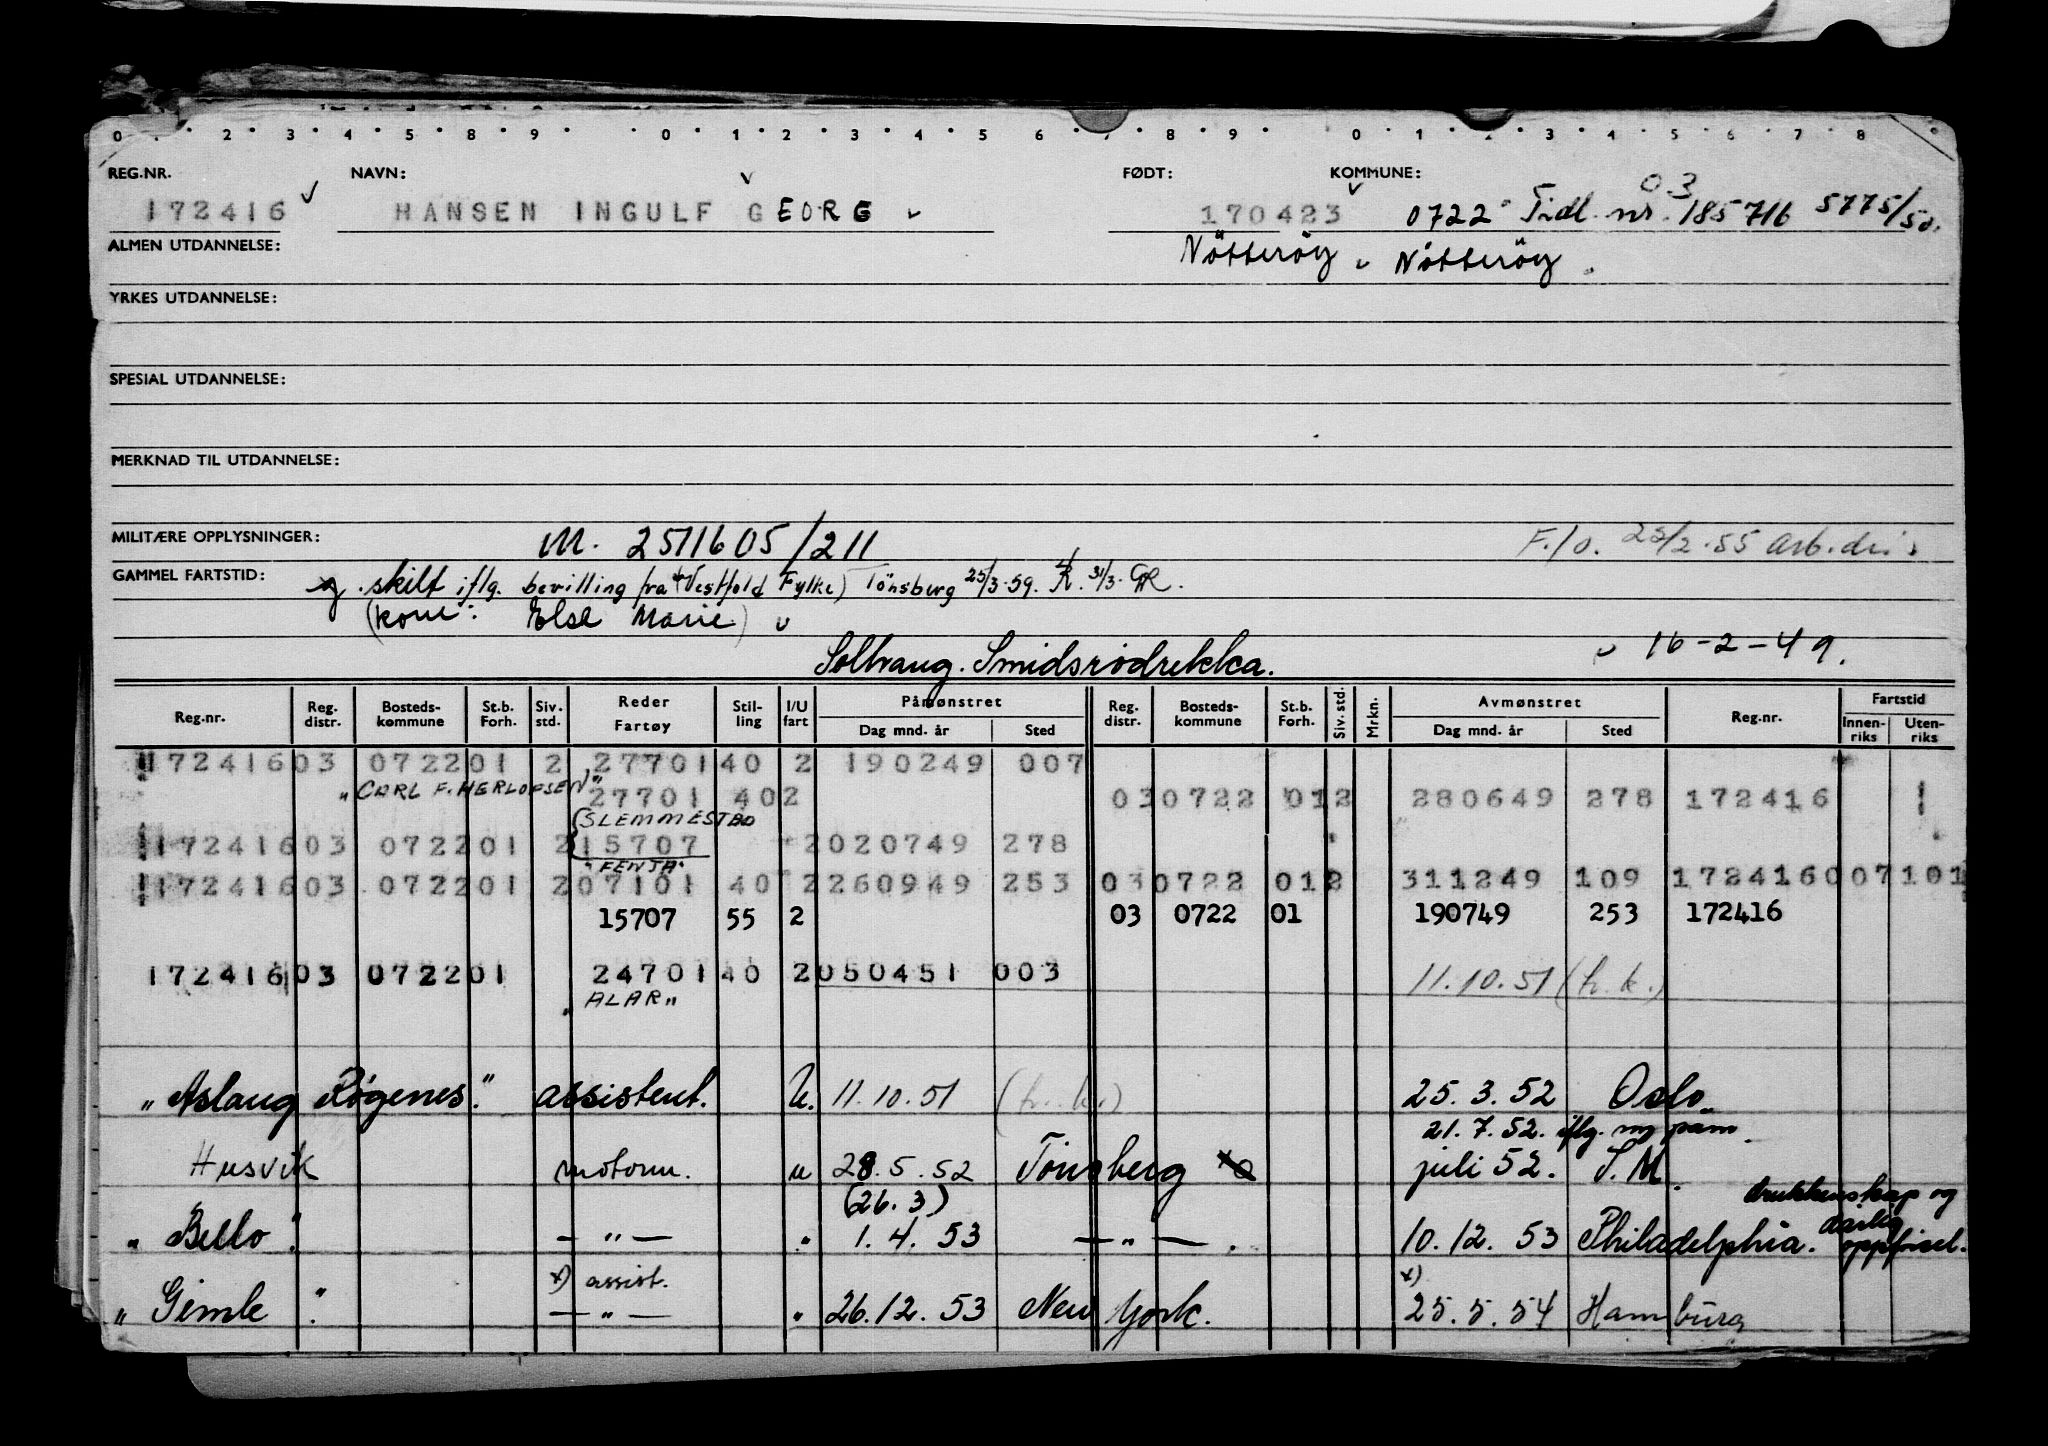 0 . . 2 . 3 . 4 . 5 . 8 . 9 . . 0 . 1 . 2 . 3 . 4 . 5 6 . . 8 . 9 . 0 . 1 . . 3 . 4 . 5 . 6 . 7 . 8 .
REG.NR. NAVN: FØDT: KOMMUNE: 03
172416 HANSEN INGULF GEORG 170423 0722 Tidl. nr. 185716 5775/50.
ALMEN UTDANNELSE: Nötteröy Nötteröy
YRKES UTDANNELSE:
SPESIAL UTDANNELSE:
MERKNAD TIL UTDANNELSE:
MILITÆRE OPPLYSNINGER: M. 2511605/211 F./o. 22/2.55 arb.dir.
GAMMEL FARTSTID: g. skilt iflg. bevilling fra Vestfold Fylke) Tönsberg 25/3.59. K. 31/3.
(kone: Else Marie)
Solvang. Smidsrødrekka. 16-2-49.
Reg.nr. Reg. distr. Bosteds-kommune St.b. Forh. Siv. std. Reder Fartøy Stil-ling I/U fart Påmønstret Dag mnd. år Sted Reg. distr. Bosteds-kommune St.b. Forh. Siv. std. Mrkn. Avmønstret Dag mnd. år Sted Reg.nr. Fartstid Innen-riks Uten-riks
172416 03 0722 01 2 27701 40 2 190249 007
"CARL F. HERLOFSEN" 27701 40 2 03 0722 01 2 280649 278 172416 1
(SLEMMESTAD
172416 03 0722 01 2 15707 2 020749 278
"FENJA"
172416 03 0722 01 2 07101 40 2 260949 253 03 0722 01 2 311249 109 172416 0007101
15707 55 2 03 0722 01 190749 253 172416
172416 03 0722 01 24701 40 2 050451 003 11.10.51 (h.k.)
"ALAR"
"Aslaug Røgenes". assistent. U. 11.10.51 (h.k.) 25.3.52 Oslo
21.7.52. iflg. ny påm.
Husvik motorm. u 28.5.52 Tönsberg juli 52. S.M.
(26.3) drukkenskap og
"Bello". — " — " 1.4.53 — " — . 10.12.53 Philadelphia. dårlig oppførsel.
x) assist. x)
"Gimle". — " — " 26.12.53 New York. 25.5.54 Hamburg